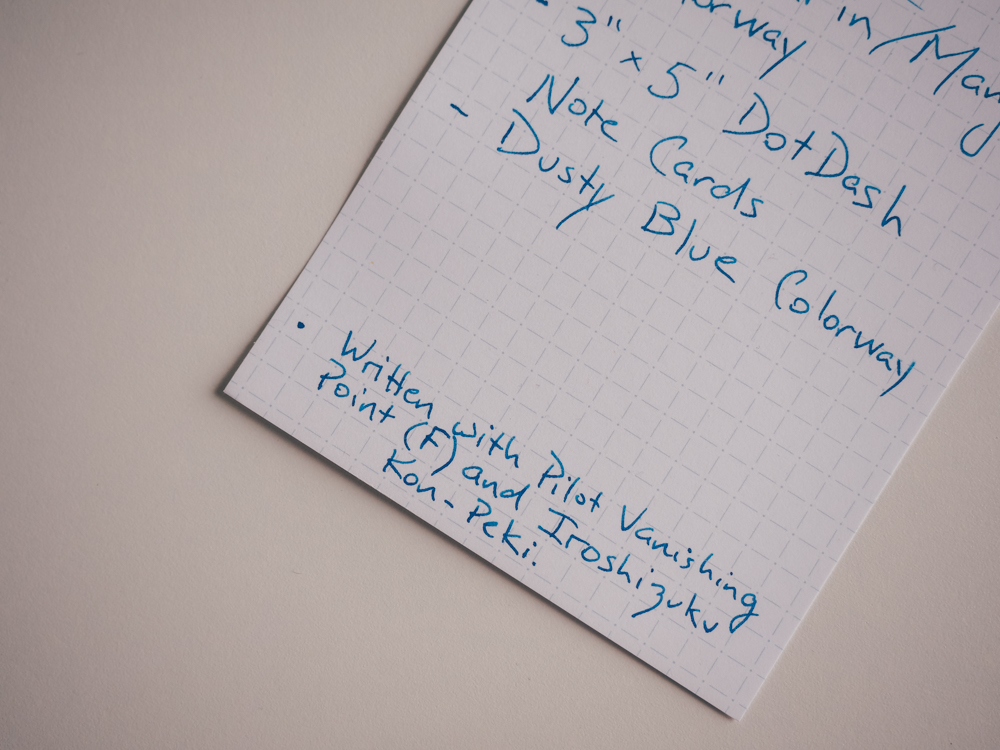 in/Man
orway
- 3" x 5" DotDash
Note Cards
- Dusty Blue Colorway
• Written with Pilot Vanishing
Point (F) and Iroshizuku
Kon-Peki.